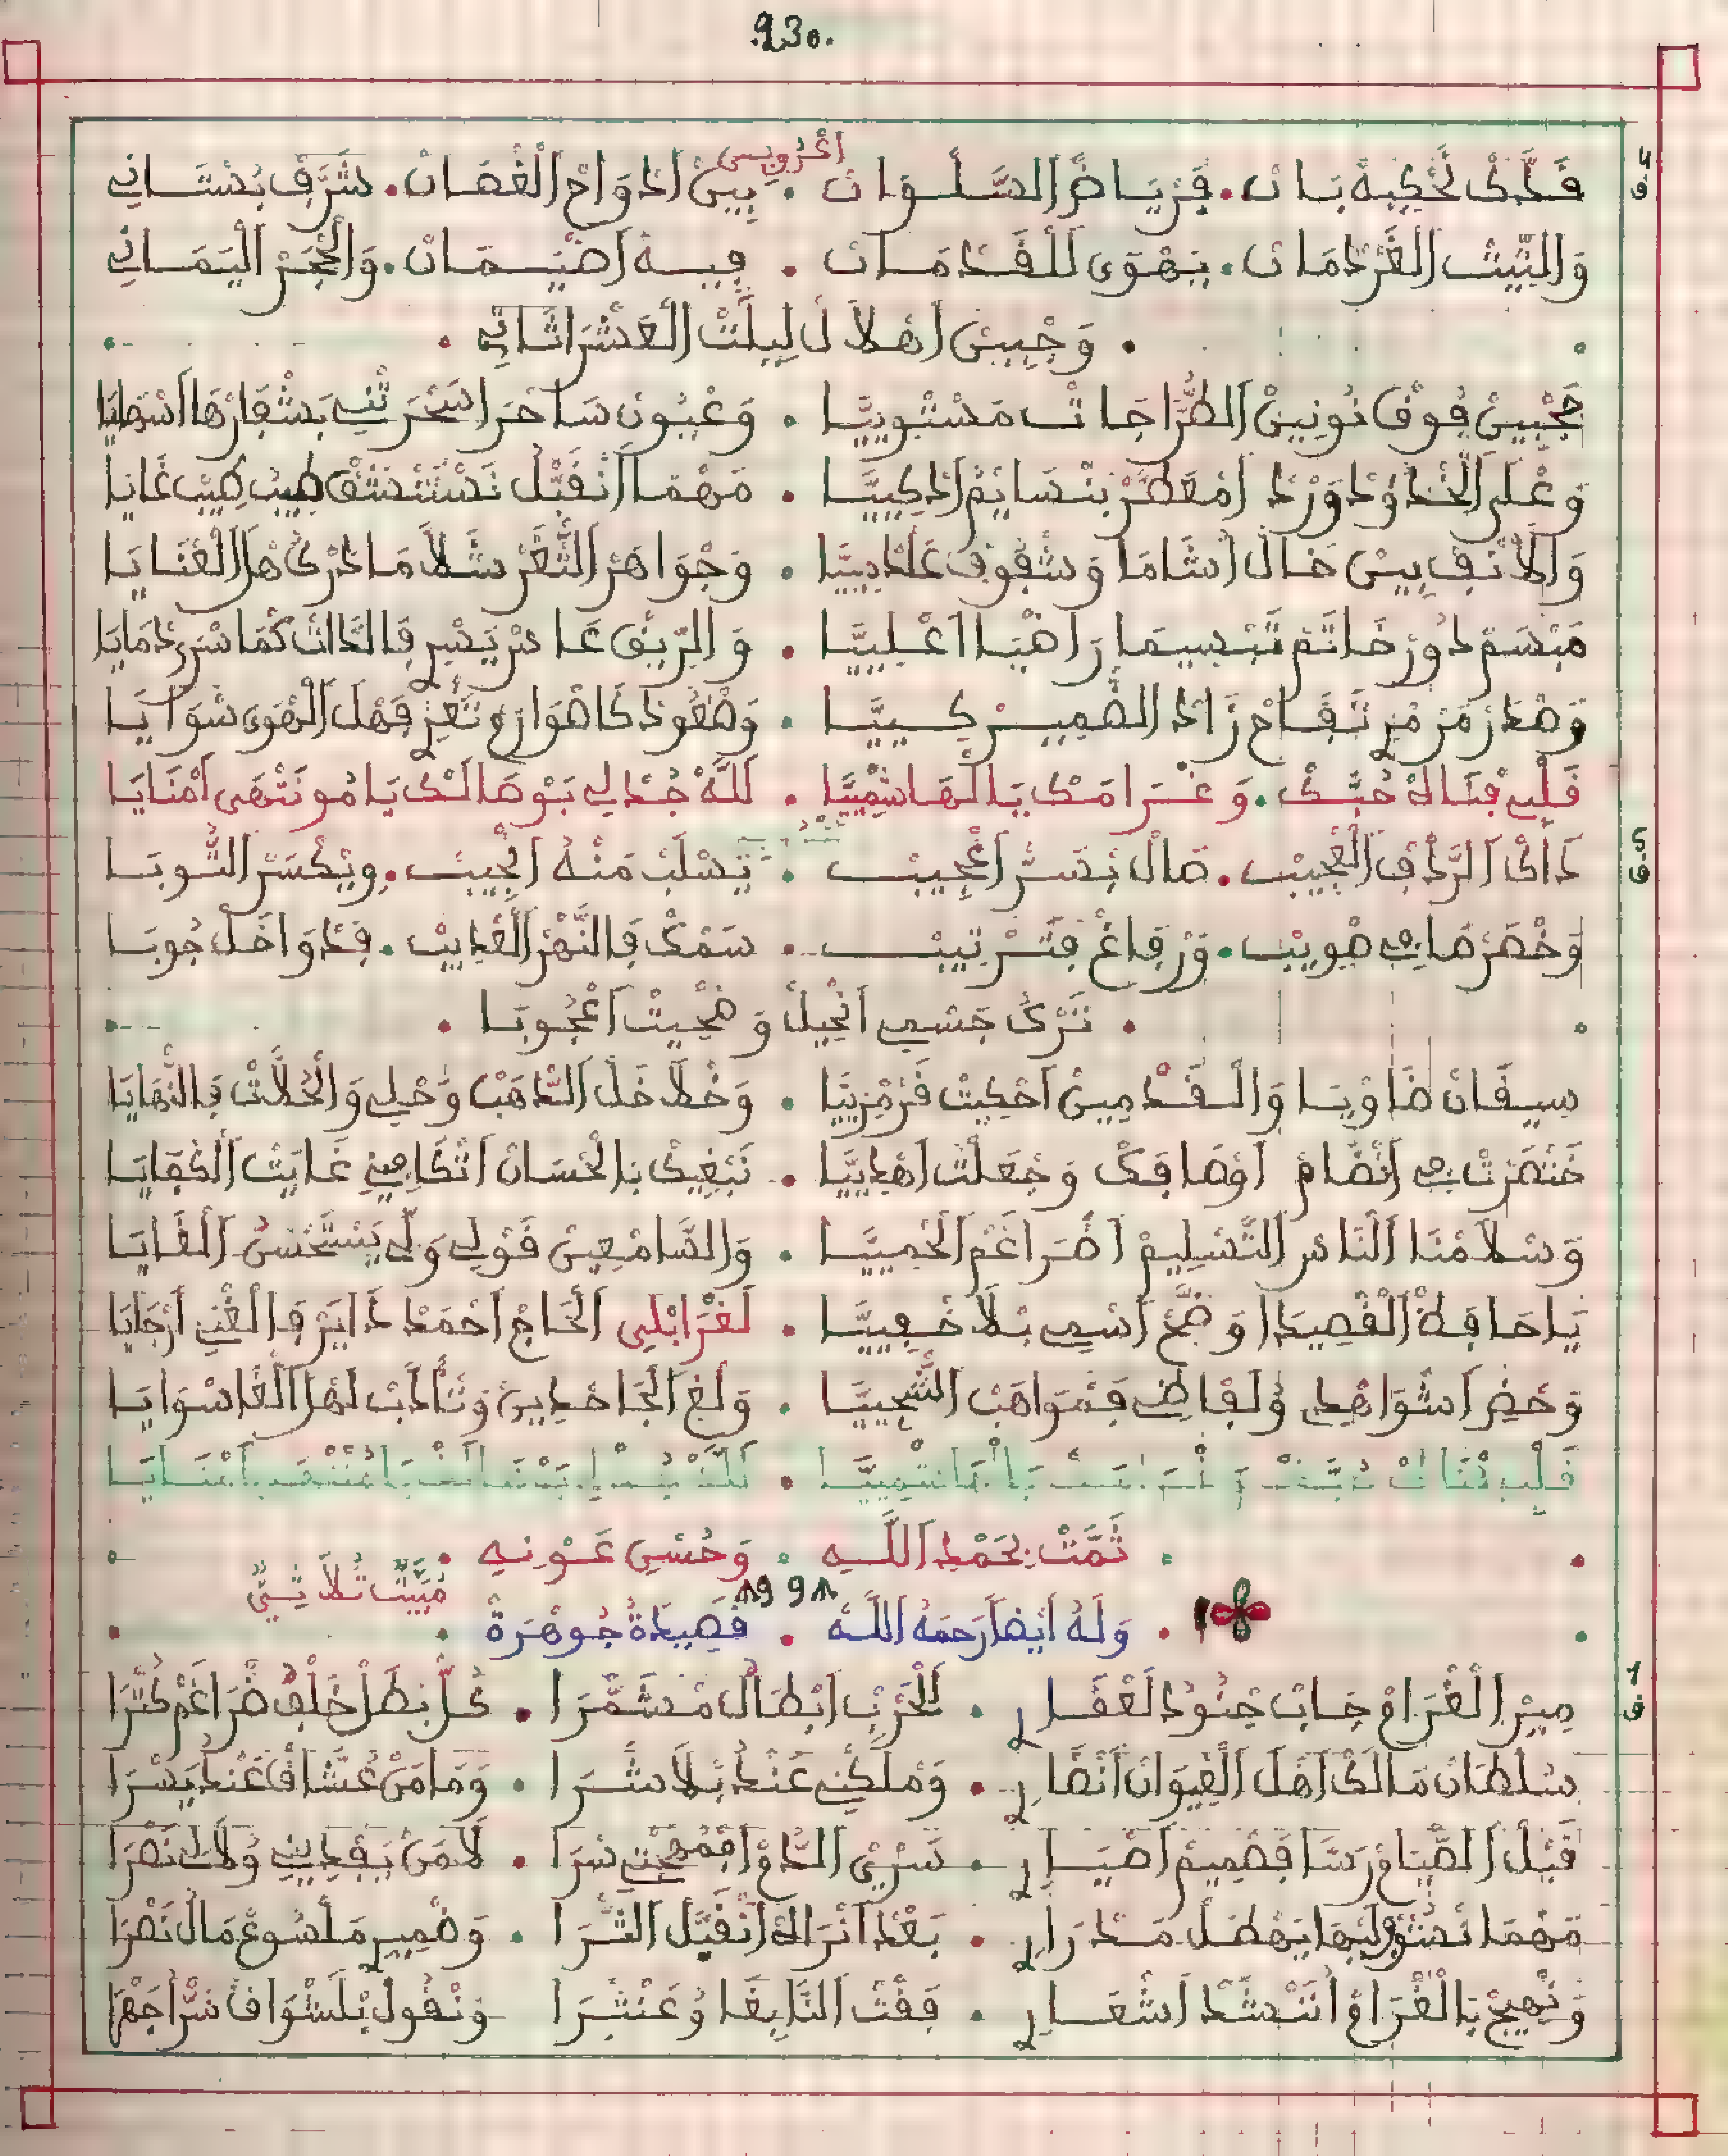 .930.
اعروبي
قَدَّكْ تَحْكِيهْ بَانْ . فَرْيَاضْ السَّلْوَانْ . بِينْ ادْوَاحْ الْغْصَانْ . شَرَّفْ بُسْتَانِي
وَالتِّيتْ الْغَرْدمَانْ . يَهْوَى لَلْقَدْمَانْ . فِيهْ اضْيَمَانْ . وَالْحْجَرْ الْيَمَانِي
وَجْبِينْ اهْلَالْ لِيلَتْ الْعَشْرَا ثَانِي
حَجْبِينْ فُوقْ نُونِينْ الطُّرَّاحَاتْ مَسْتْوِيَّا . وَعْيُونْ سَاحْرَا سَحْرَتْنِي بَشْفَارْهَا
وَعْلَى الْخْدُودْ وَرْدْ امْعَطَّرْ بَنْسَايَمْ ادْكِيَّا . مَهْمَا انْقَبَّلْ نَسْتَنْشَقْ طِيبْ
وَالْأَنْفْ بِينْ خَالْ اُشَامَا وَشْفُوفْ عَنْدْمِيَّا . وَجْوَاهَرْ الثَّغَرْ سَلَّا مَا دْرْكْ
مَبْسَمْ دُورْ خَاتَمْ تَبْسِيمَا رَاهْيَا اعْلِيَّا . وَالرِّيقْ عَادْ يَسْرِي فَالدَّاتْ كْمَا سْرَى دْمَايَا
وَصْدَرْ مَرْمْرِي تَفَّاحْ زَادْ الضْمِيرْ كِيَّا . وَ فَهْلْ الْهْوَى سْوَايَا
قَلْبِي فْنَاهْ حُبَّكْ . وَغْرَامَكْ يَا الْهَاشْمِيَّا . لَلَّهْ جُدْ لِي بَوْصَالَكْ يَا مُونْتْهَى امْنَايَا
دَاكْ الرَّدْفْ الْعْجِيبْ . صَالْ بَسَرّْ اعْجِيبْ . يَسْلَبْ مَنْهُ الْجِيبْ . وِيْكَسَّرْ التُّوبَا
وَخْصَرْ صَابِي صْوِيبْ . وَرْفَاغْ فَتَرْتِيبْ . سَمْكْ فَالنَّهْرْ الْعْدِيبْ . فَدْوَاخَلْ جُوبَا
تَرْكْ جَسْمِي انْحِيلْ وَضْحِيتْ اعْجُوبَا
سِيقَانْ ضَاوْيَا وَالْقَدْمِينْ احْكِيتْ قَرْمْزِيَّا . وَخْلَاخَلْ الدَّهَبْ وَحْلِي وَالْحُلَّاتْ فَالنّْهَايَا
خَنْتْصَرْتْ فِي انْضَامْ اوْصَافَكْ وَجْعَلْتْ اهْدِيَّا . نَبْغِيكْ بَالْحْسَانْ اتْكَافِينِي غَايَتْ الْكْفَايَا
وَسْلَامْنَا النَّاسْ التَّسْلِيمْ اضْرَاغَمْ الْحْمِيَّا . وَالسَّامْعِينْ قَوْلِي وَلِّي يَسْتَحْسَنْ الْغَايَا
يَا حَافَظْ الْقْصِيدَا وَضَّحْ اسْمِي بْلَا خْفِيَّا . لَغْرَابْلِي الْحَاجْ احْمَدْ دَايَرْ فَالْغْنِي ارْجَايَا
وَحْضِي اشْوَاهْدِي وَلْفَاظِي فَمْوَاهَبْ السّْجِيَّا . وَلْغِي الْجَاحْدِينْ وَتَأَدَّبْ لَهْلْ
قَلْبِي فْنَاهْ حُبَّكْ وَغْرَامَكْ يَا الْهَاشْمِيَّا . لَلَّهْ جُدْ لِي بَوْصَالَكْ يَا مُونْتْهَى امْنَايَا
تَمَّتْ بِحَمْدِ اللَّهِ . وَحُسْنِ عَوْنِهِ .
1991
مْبَيَّتْ تُلَاثِيّْ
وَلَهُ أَيْضاً رَحِمَهُ اللَّهُ . قَصِيدَةُ جُوهْرَةْ
مِيرْ الْغْرَامْ جَابْ جْنُودْ لَعْقَارِي . لَلْحَرْبْ ابْطَالْ مْشَمّْرَا . كُلّْ بْطَلْ خَلْفُ ضْرَاغَمْ كَتْرَا
سُلْطَانْ مَالَكْ اهْلْ الْفِيوَانْ انْضَارِي . وَمْلَكْنِي عَنْدُ بْلَا شْرَا . وَمَا مَنْ عُشَّاقْ عَنْدُ يَسْرَا
قَبْلْ الصّْيَامْ رْسَا فَصْمِيمْ اضْيَارِي . سَرْيْ الدَّامْ افْمُهْجْتِي سْرَا . لَا مَنْ يَفْدِينِي وُلَا لِي نَصْرَا
مَهْمَا يَهْطَلْ مَدْرَارِي . بَعْدْ انْرَاهْ انْقَبَّلْ التّْرَا . وَضْمِيرِي مَلْسُوعْ مَالْ نَصْرَا
وَنْهِيجْ بَالْغْرَامْ انَّنْشَدْ اشْعَارِي . فَقْتْ النَّابِغَا وُعَنْتْرَا . وَنْقُولْ بْلَشْوَاقْ سَرّْ اجَهْرَا